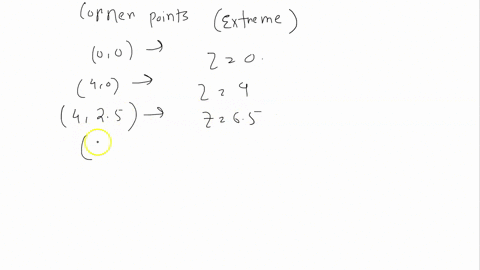 Corner points (Extreme)
(0,0) → Z = 0.
(4,0) → Z = 4
(4, 2.5) → Z = 6.5
(